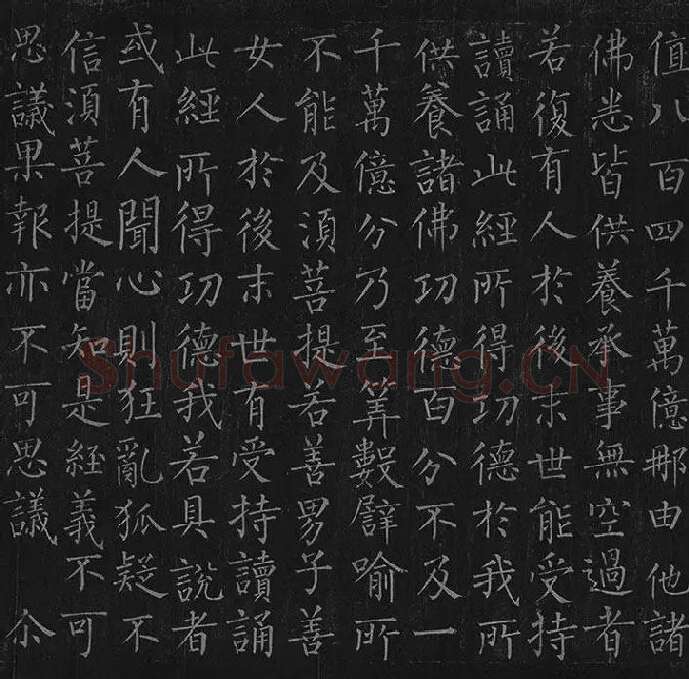 值八百四千萬億那由他諸
佛悉皆供養承事無空過者
若復有人於後末世能受持
讀誦此經所得功德於我所
供養諸佛功德百分不及一
千萬億分乃至筭數譬喻所
不能及須菩提若善男子善
女人於後末世有受持讀誦
此經所得功德我若具說者
或有人聞心則狂亂狐疑不
信須菩提當知是經義不可
思議果報亦不可思議 尒
Shufawang.CN